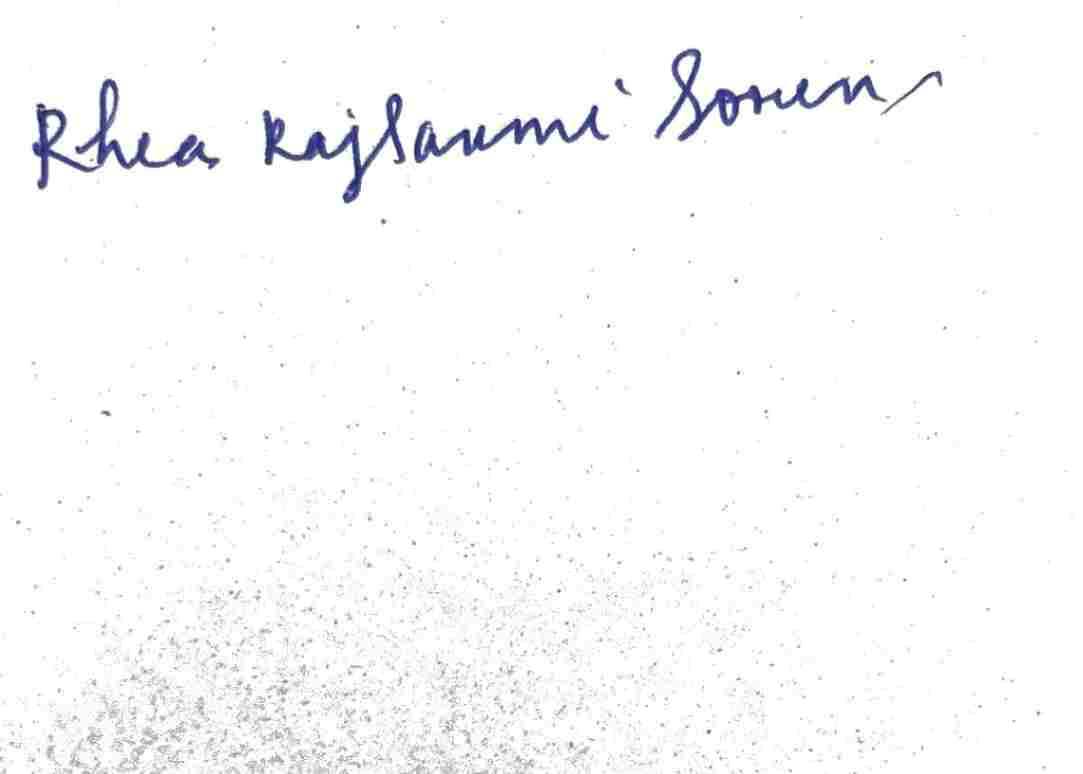 Rhea Rajlaxmi Soren